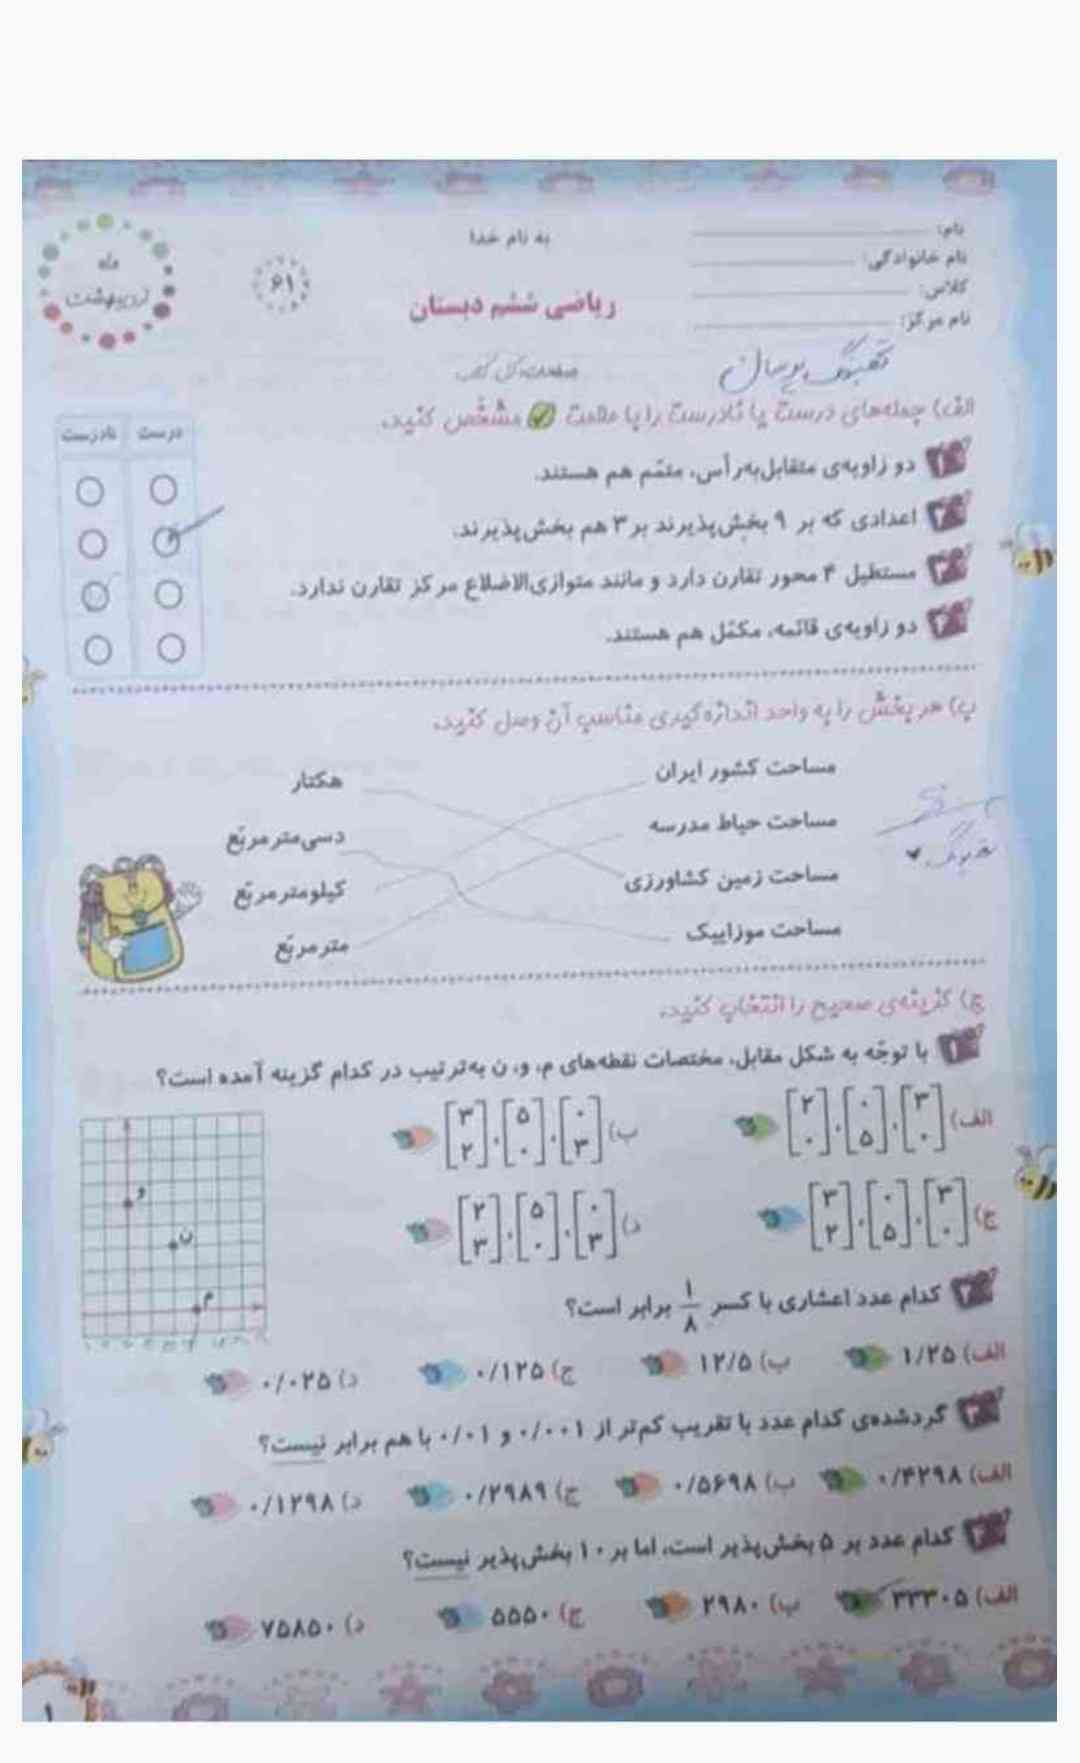 به نام خدا
نام:
نام خانوادگی:
کلاس:
نام مرکز:
ریاضی ششم دبستان
۶۱
ماه
اردیبهشت
الف) جمله‌های درست یا نادرست را با علامت مشخّص کنید.
درست نادرست
۱ دو زاویه‌ی متقابل‌به‌رأس، متمّم هم هستند.
۲ اعدادی که بر ۹ بخش‌پذیرند بر ۳ هم بخش‌پذیرند.
۳ مستطیل ۴ محور تقارن دارد و مانند متوازی‌الاضلاع مرکز تقارن ندارد.
۴ دو زاویه‌ی قائمه، مکمّل هم هستند.
ب) هر بخش را به واحد اندازه‌گیری مناسب آن وصل کنید.
مساحت کشور ایران هکتار
مساحت حیاط مدرسه دسی‌متر مربّع
مساحت زمین کشاورزی کیلومتر مربّع
مساحت موزاییک متر مربّع
ج) گزینه‌ی صحیح را انتخاب کنید.
۱ با توجّه به شکل مقابل، مختصات نقطه‌های م، و، ن به‌ترتیب در کدام گزینه آمده است؟
الف) [۳ ۰]، [۰ ۵]، [۲ ۰] ب) [۰ ۳]، [۵ ۰]، [۳ ۲]
ج) [۳ ۰]، [۰ ۵]، [۳ ۲] د) [۰ ۳]، [۵ ۰]، [۲ ۳]
و
ن
م
۲ کدام عدد اعشاری با کسر ۱/۸ برابر است؟
الف) ۱/۲۵ ب) ۱۲/۵ ج) ۰/۱۲۵ د) ۰/۰۲۵
۳ گردشده‌ی کدام عدد با تقریب کم‌تر از ۰/۰۰۱ و ۰/۰۱ با هم برابر نیست؟
الف) ۰/۴۲۹۸ ب) ۰/۵۶۹۸ ج) ۰/۲۹۸۹ د) ۰/۱۲۹۸
۴ کدام عدد بر ۵ بخش‌پذیر است، اما بر ۱۰ بخش‌پذیر نیست؟
الف) ۳۳۳۰۵ ب) ۲۹۸۰ ج) ۵۵۵۰ د) ۷۵۸۵۰
۱